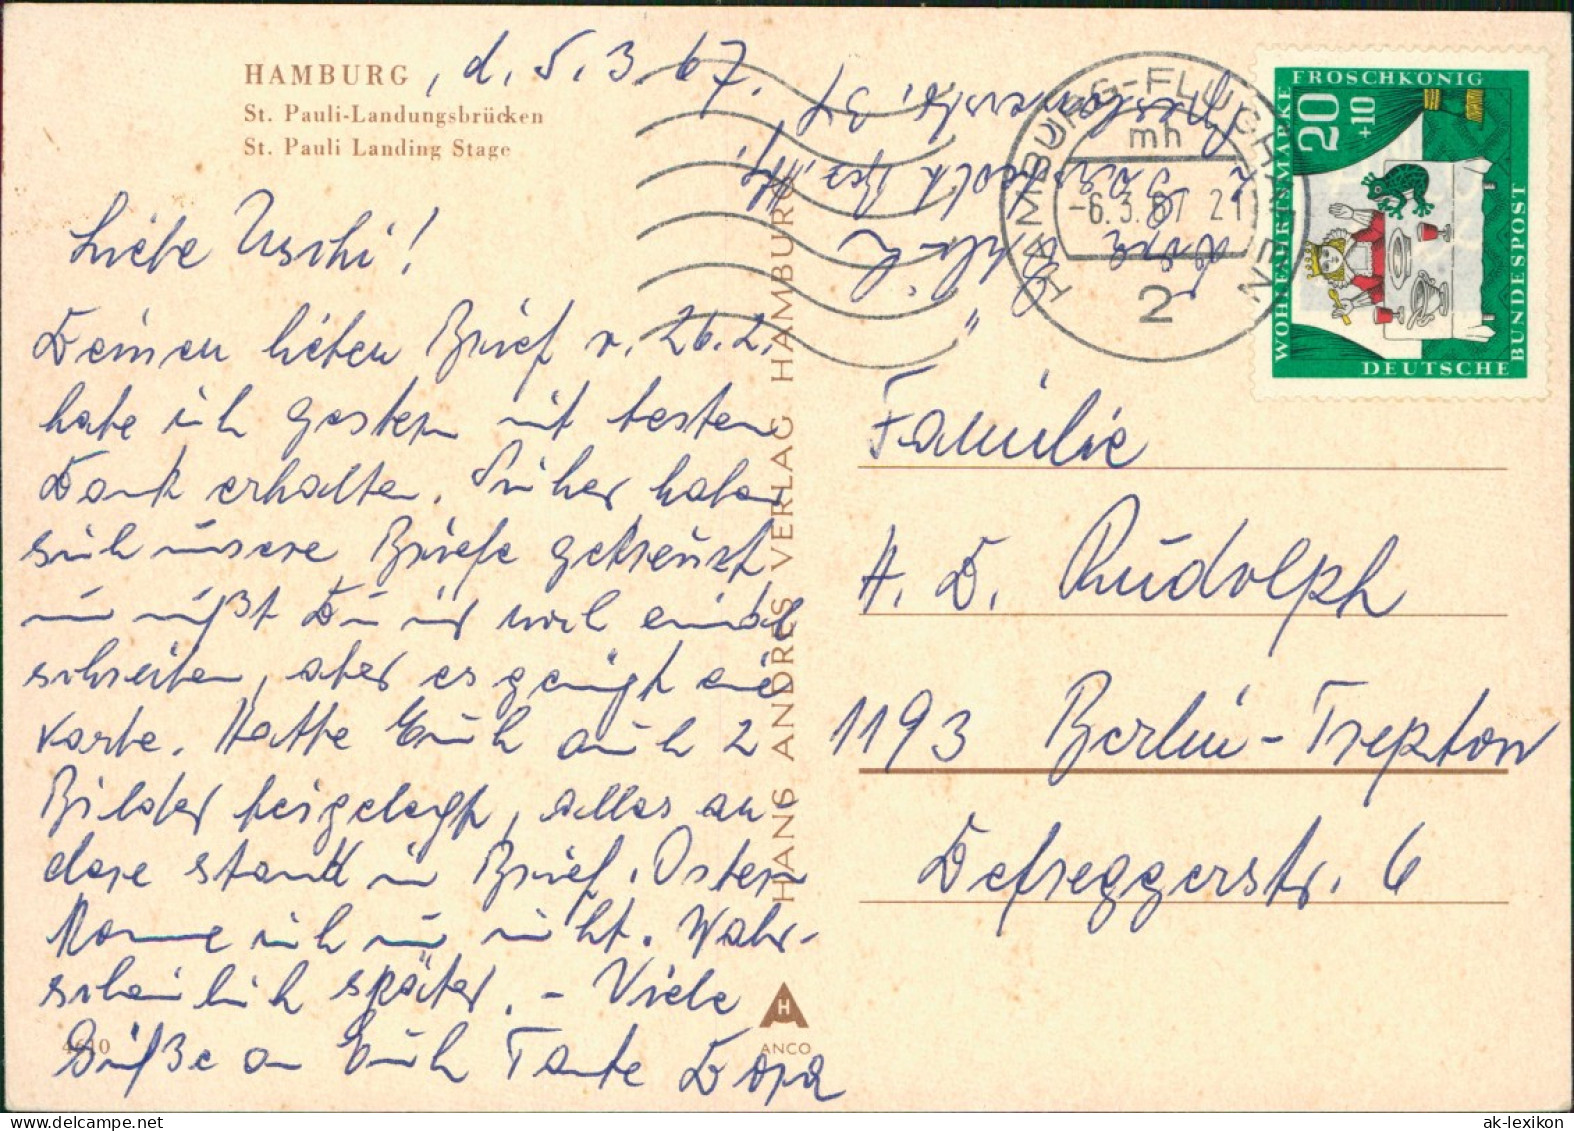 HAMBURG, d. 5.3.67.
St. Pauli-Landungsbrücken
St. Pauli Landing Stage
Liebe Uschi!
Deinen lieben Brief v. 26.2.
habe ich gestern mit besten
Dank erhalten. Sicher haben
sich unsere Briefe gekreuzt
Du mir noch einmal
schreiben, aber es genügt eine
Karte. Hatte Euch auch 2
Bilder beigelegt, alles an-
dere stand im Brief. Ostern
komme ich nun nicht. Wahr-
scheinlich später. - Viele
Grüße an Euch Tante Dora
4610
HANS ANDRES VERLAG HAMBURG
H
ANCO
HAMBURG-FLUGHAFEN
mh
-6.3.67 21
2
WOHLFAHRTSMARKE
FROSCHKÖNIG
20
+10
DEUTSCHE
BUNDESPOST
Familie
A. D. Rudolph
1193 Berlin-Treptow
Defreggerstr. 6
ak-lexikon.com